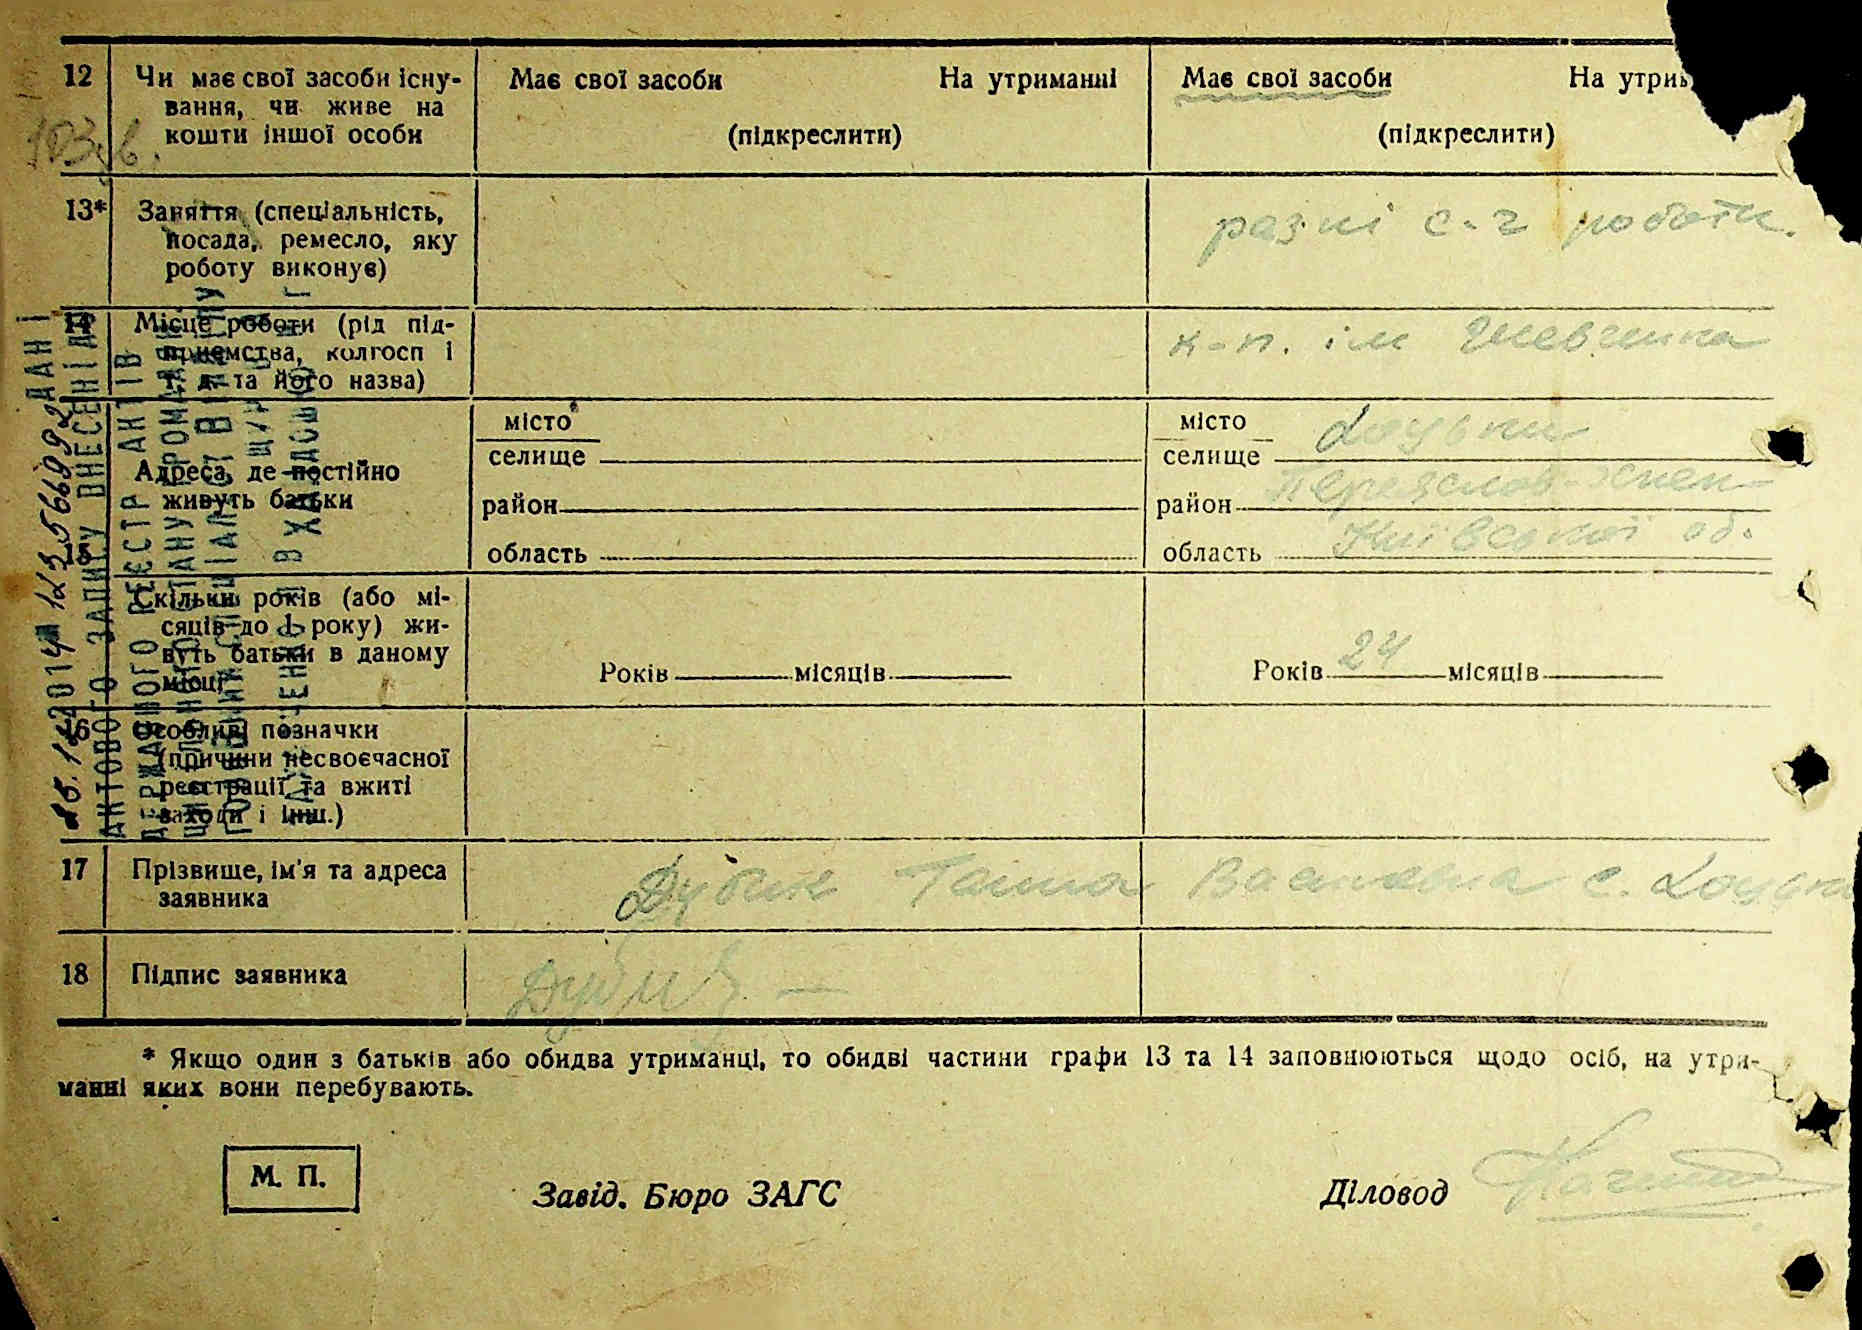 12 Чи має свої засоби існу- Має свої засоби На утриманні Має свої засоби На утри
вання, чи живе на
кошти іншої особи (підкреслити) (підкреслити)
103 в.
13* Заняття (спеціальність,
посада, ремесло, яку разні с-г роботи.
роботу виконує)
14 Місце роботи (рід під-
приємства, колгосп і к-п. ім Шевченка
т. д. та його назва)
місто місто
селище селище
Адреса, де постійно
живуть батьки
район район Переяслов-Хмен-
область область Київської об.
15 Скільки років (або мі-
сяців до 1 року) жи-
вуть батьки в даному
місці
Років місяців Років 24 місяців
16 Особливі позначки
(причини несвоєчасної
реєстрації та вжиті
заходи і інш.)
17 Прізвище, ім'я та адреса
заявника
Ганна Василівна с.
18 Підпис заявника
* Якщо один з батьків або обидва утриманці, то обидві частини графи 13 та 14 заповнюються щодо осіб, на утри-
манні яких вони перебувають.
М. П.
Завід. Бюро ЗАГС Діловод
ДАНІ
АКТОВОГО ЗАПИСУ ВНЕСЕНІ ДО
ДЕРЖАВНОГО РЕЄСТР АКТІВ